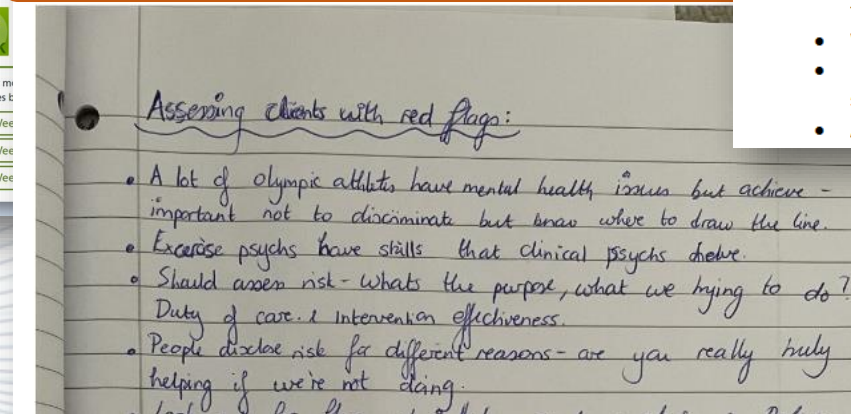 Assessing clients with red flags:
• A lot of olympic athletes have mental health issues but achieve -
important not to discriminate but know where to draw the line.
• Excercise psychs have skills that clinical psychs
• Should assess risk - whats the purpose, what we trying to do?
Duty of care. & intervention effectiveness.
• People disclose risk for different reasons - are you really truly
helping if we're not doing.